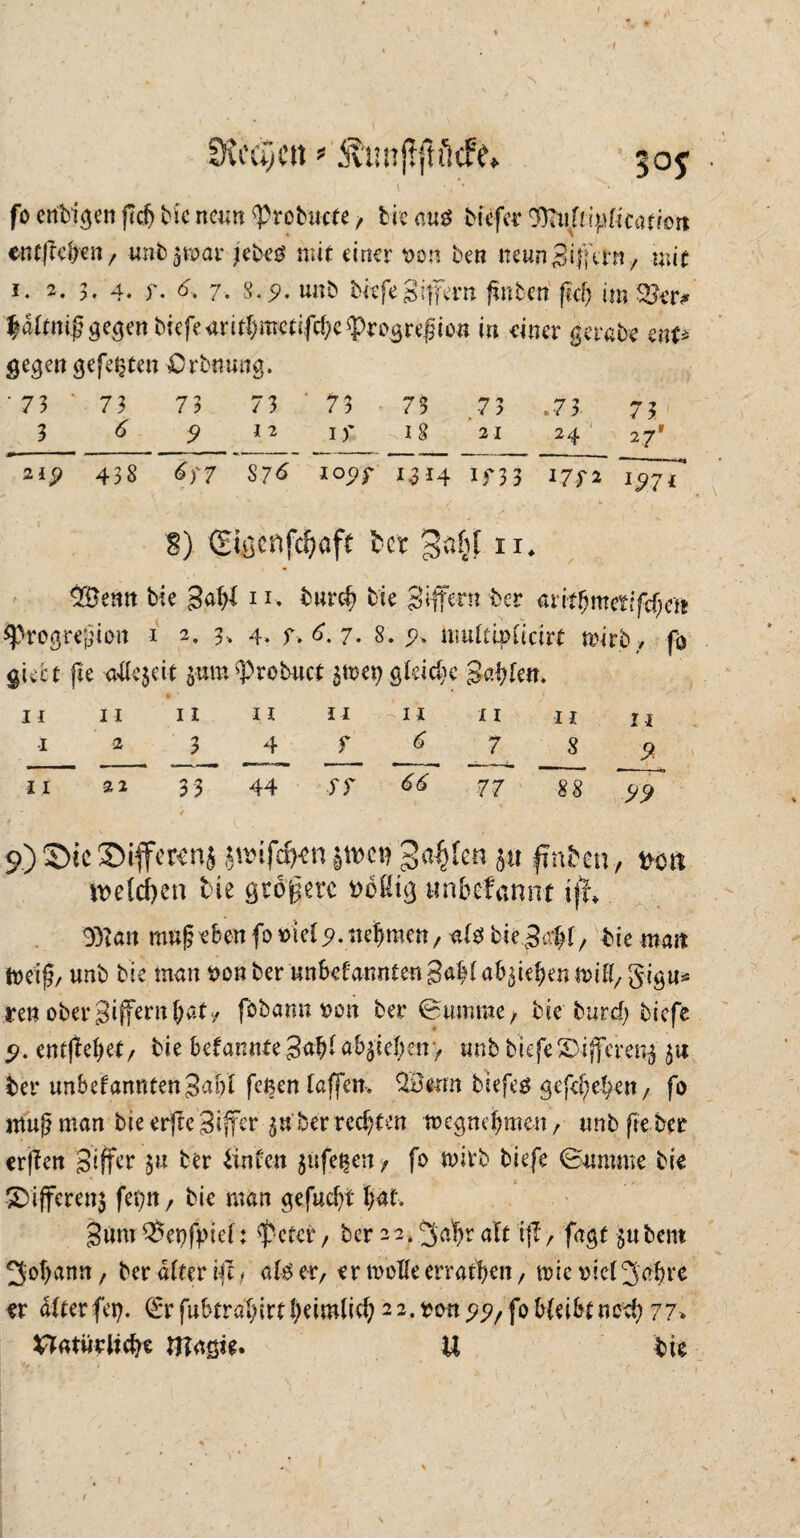 Rechen-Kunststücke. 305
so endigen sich die neun Producte, die aus dieser Multiplication
entstehen, und zwar jedes mit einer von den neun Ziffern, mit
1. 2. 3. 4. 5. 6. 7. 8. 9. und diese Ziffern finden sich im Ver-
hältniß gegen diese arithmetische Progreßion in einer gerade ent-
gegen gesetzten Ordnung.
73 73 73 73 73 73 73 73 73
3 6 9 12 15 18 21 24 27
219 438 657 876 1095 1314 1533 1752 1971
8) Eigenschaft der Zahl 11.
Wenn die Zahl 11. durch die Ziffern der arithmetischen
Progreßion 1 2. 3. 4. 5. 6. 7. 8. 9. multiplicirt wird, so
giebt sie allezeit zum Product zwey gleiche Zahlen.
11 11 11 11 11 11 11 11 11
1 2 3 4 5 6 7 8 9
11 22 33 44 55 66 77 88 99
9) Die Differenz zwischen zwey Zahlen zu finden, von
welchen die größere völlig unbekannt ist.
Man muß eben so viel 9. nehmen, als die Zahl, die man
weiß, und die man von der unbekannten Zahl abziehen will, Figu-
ren oder Ziffern hat, sodann von der Summe, die durch diese
9. entstehet, die bekannte Zahl abziehen, und diese Differenz zu
der unbekannten Zahl setzen lassen. Wenn dieses geschehen, so
muß man die erste Ziffer zu der rechten wegnehmen, und sie der
ersten Ziffer zu der linken zusetzen, so wird diese Summe die
Differenz seyn, die man gesucht hat.
Zum Beyspiel: Peter, der 22. Jahr alt ist, sagt zu dem
Johann, der älter ist, als er, er wolle errathen, wie viel Jahre
er älter sey. Er subtrahirt heimlich 22. von 99, so bleibt noch 77.
Natürliche Magie. U die